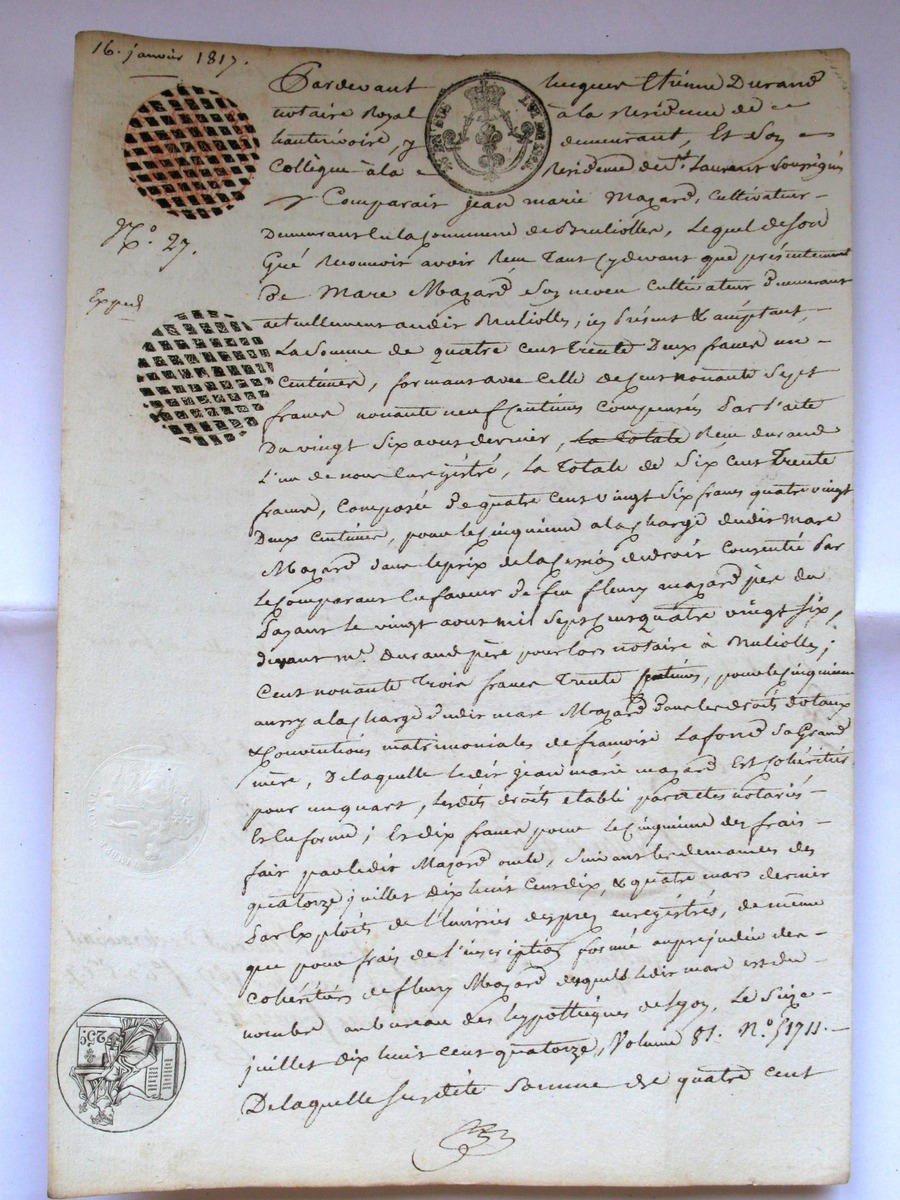 16. janvier 1817.
Pardevant Jacques Etienne Durand
notaire Royal à la Residence de
hauterivoire, y demeurant, Et Son
Collègue à la Residence de St. Laurent
Comparait jean marie Mazard, cultivateur
Demeurant en la Commune de Bruliolles, Lequel de son
N.o 27.
Gré Reconnoit avoir Reçu Tant Cydevant que présentement
Exped
De Marc Mazard Son neveu Cultivateur Demeurant
actuellement audit Bruliolles, ici présent & acceptant,
La Somme de quatre cent Trente Deux francs un
Centime, formant avec Celle de Cent nonante Sept
francs nonante neuf Centimes Compensés par l'acte
Du vingt Six aout dernier, la Totale Reçu durand
L'un de nous Enregistré, La Totale de Six cent Trente
francs, Composée De quatre cent vingt Six francs quatre vingt
Deux Centimes, pour le Cinquieme a la charge dudit Marc
Mazard dans le prix de la Cession de droits Consentie par
le Comparant en faveur de feu fleury mazard père du
payant le vingt aout mil Sept cent quatre vingt Six,
devant me. Durand père pour lors notaire à Bruliolles;
Cent nonante Trois francs Trente Centimes, pour le Cinquieme
aussy a la charge dudit marc Mazard dans les droits dotaux
& Conventions matrimoniales de françoise Lafond Sa Grand
mère, De laquelle ledit jean marie mazard Est Cohéritier
pour un quart, lesdits droits etabli par actes notariés
En forme; Et dix francs pour le Cinquieme des frais
fait par ledit Mazard oncle, Suivant les demandes des
quatorze juillet Dix huit Cent dix, & quatre mars dernier
par Exploits de l'huissier despres enregistrés, de même
que pour frais de l'inscription formée au préjudice des
cohéritiers de fleury Mazard desquels ledit marc est du
nombre au bureau des hypothèques de Lyon, Le Seize
juillet dix huit cent quatorze, Volume 81. N.o 51711.
25 C.
De laquelle Susdite Somme de quatre cent